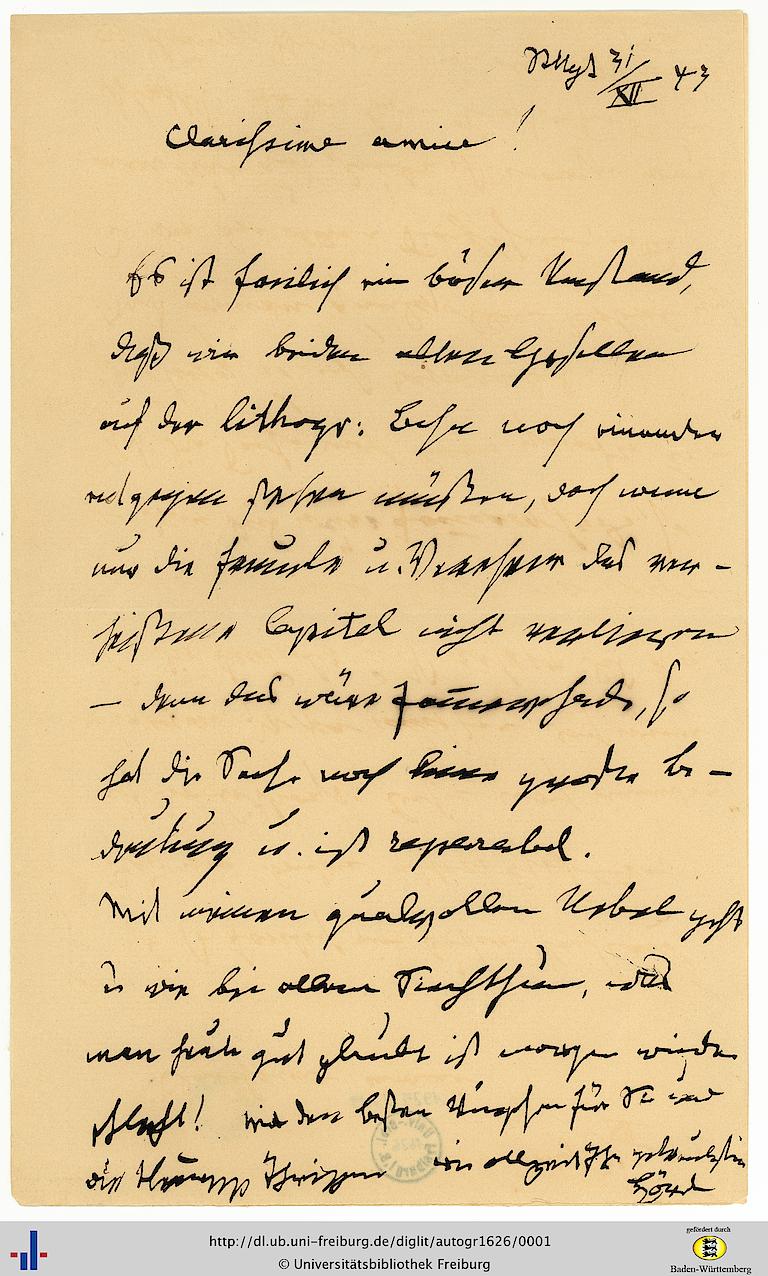 31/XII 43
Clarissime amice!
Es ist freilich ein böser Umstand,
daß wir beiden alten Gesellen
auf der lithogr: noch einander
entgegen stehen müßen, doch wenn
nur die Freunde u. Verehrer das
Capital nicht verlieren
— denn das wäre so
hat die Sache noch keine große Be-
deutung u. ist reparabel.
Mit meinem qualvollen Uebel geht
es wie bei allem Siechthum, was
man heute gut glaubt ist morgen wieder
schlecht! den besten Wünschen für Sie und
die Ihrigen wie allzeit Ihr
http://dl.ub.uni-freiburg.de/diglit/autogr1626/0001
© Universitätsbibliothek Freiburg
gefördert durch
Baden-Württemberg